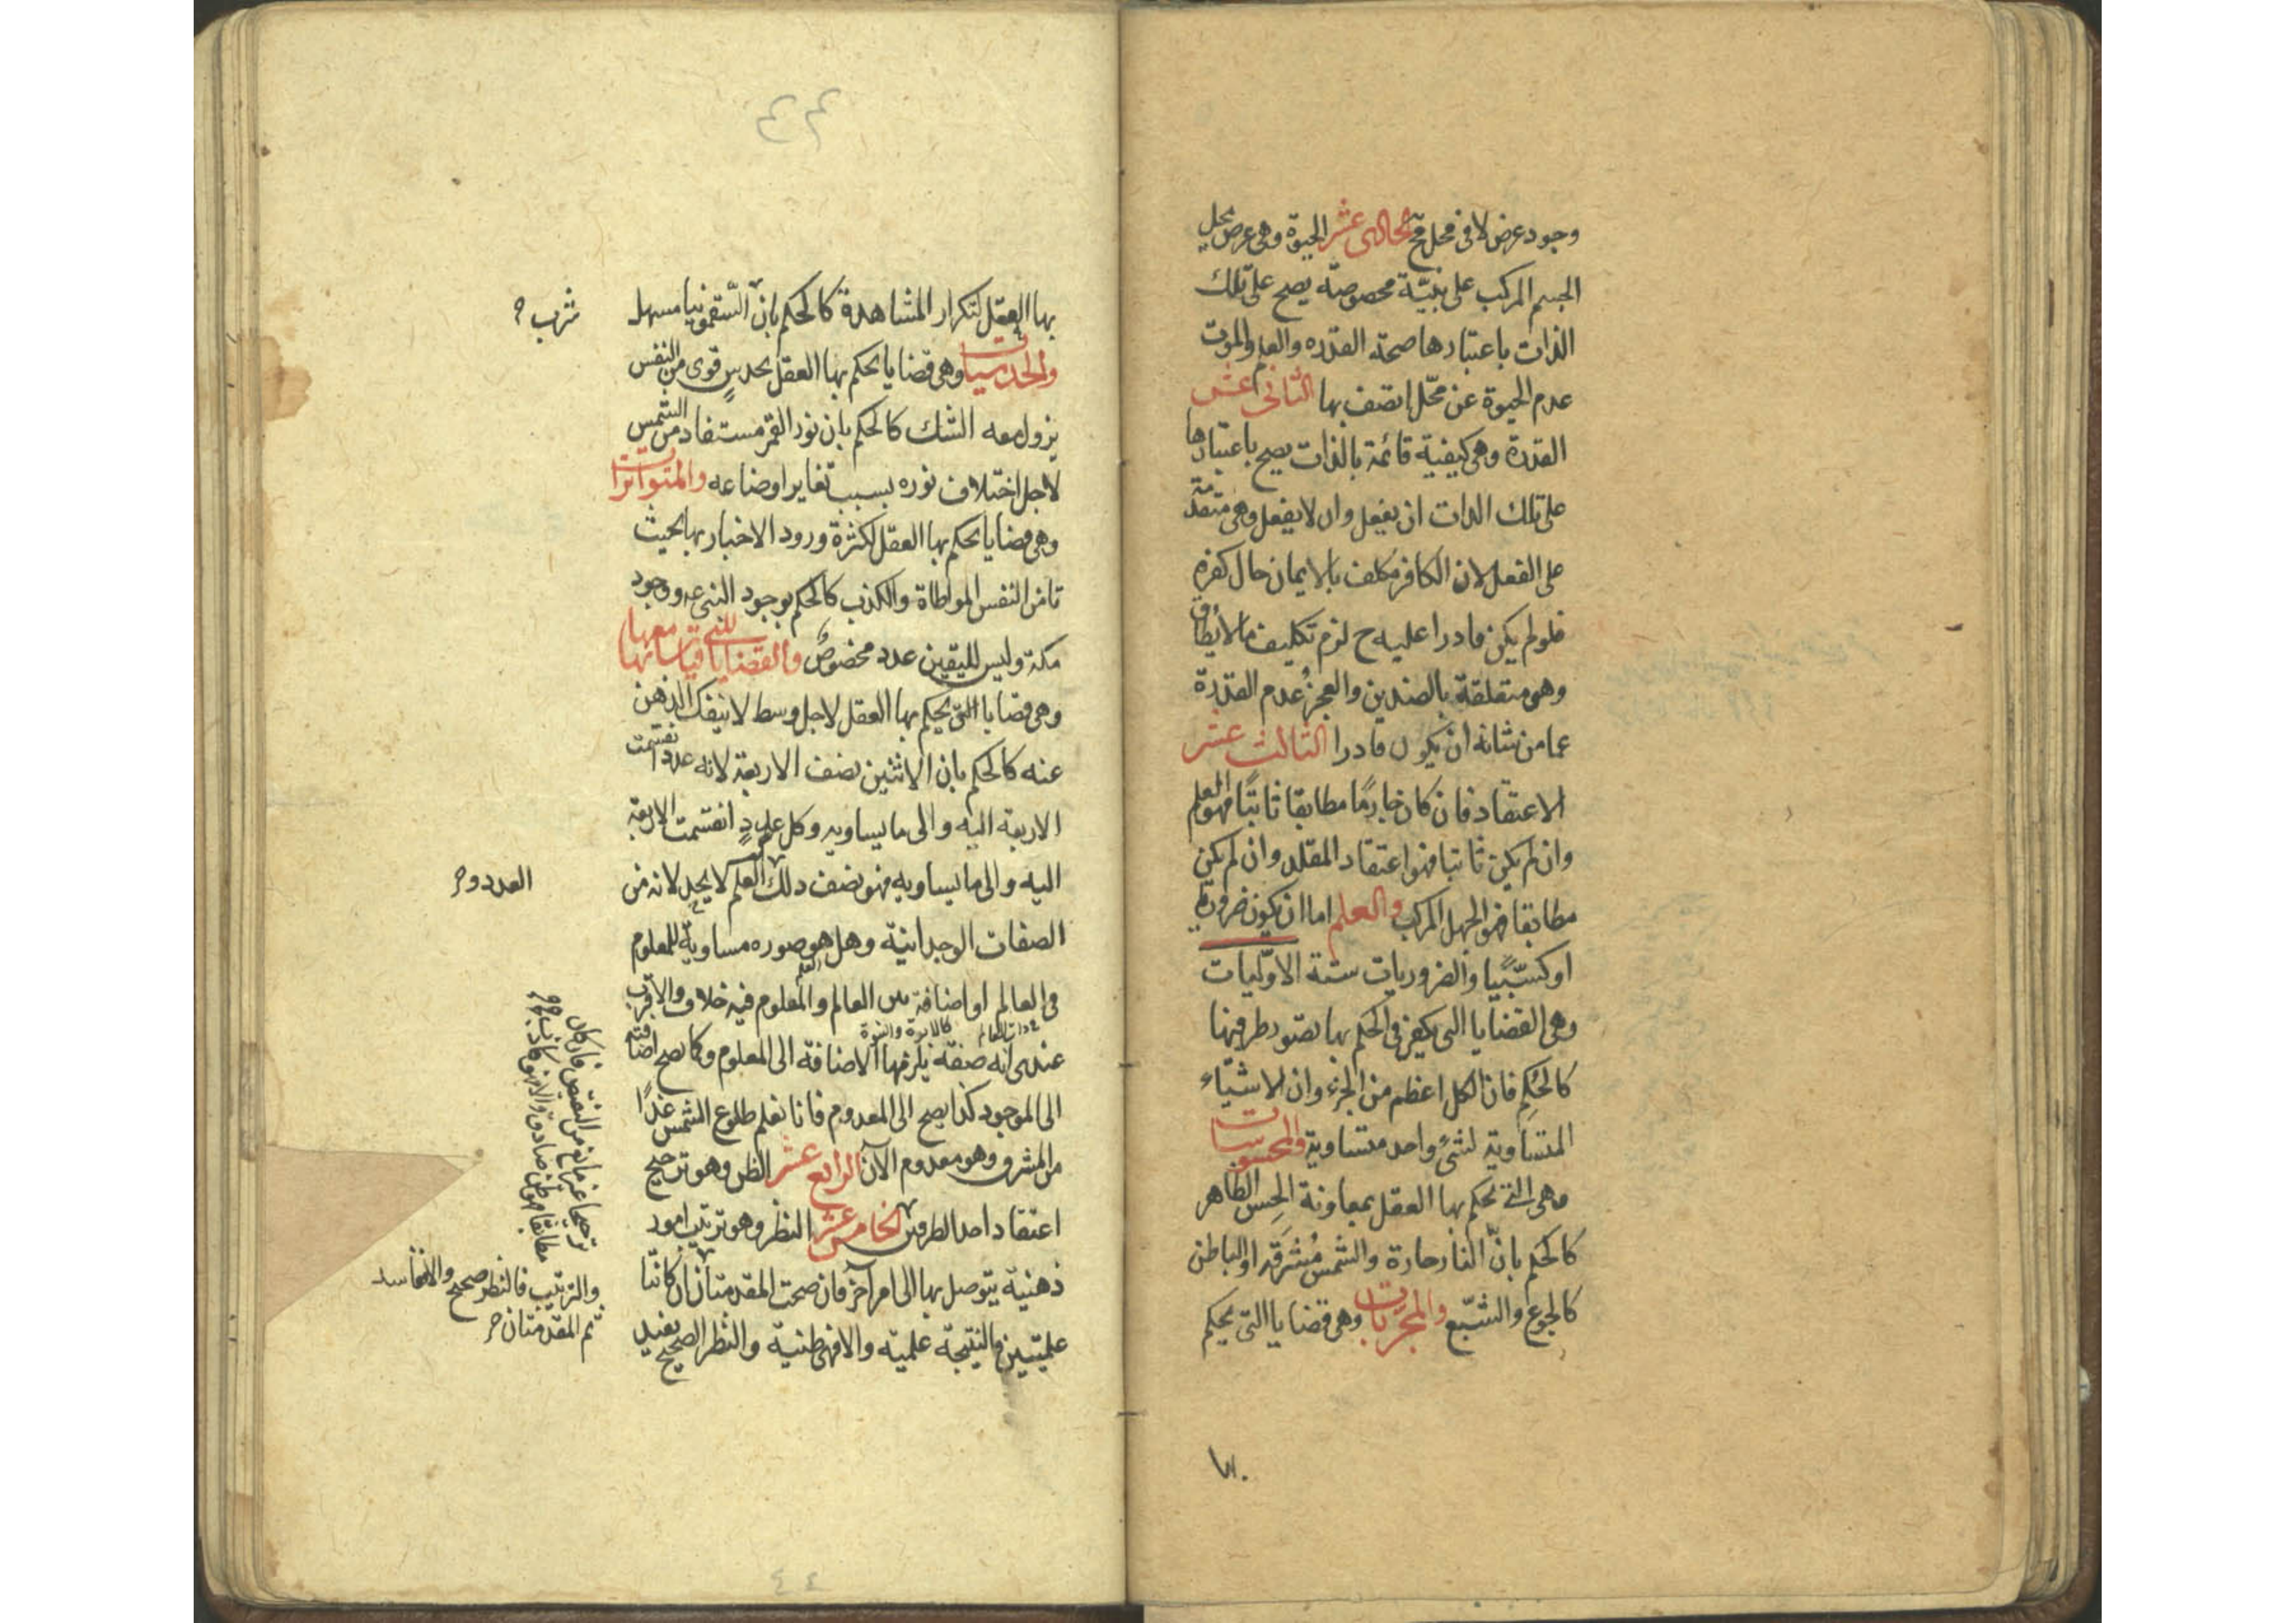 وجود عرض لا فى محل مح الحادى عشر الحيوة وهى عرض يحل
الجسم المركب على بنيّة مخصوصة يصح على تلك
الذات باعتبارها صحة القدره والعلم والموت
عدم الحيوة عن محّل اتصف بها الثانى عشر
القدرة وهى كيفية قائمة بالذات يصح باعتبارها
على تلك الذات ان يفعل وان لا يفعل وهى متقدمة
على الفعل لان الكافر مكلف بالايمان حال كفره
فلو لم يكن قادرا عليه ح لزم تكليف ما لا يُطاق
وهو متعلقة بالضدين والعجزُ عدم القدرة
عما من شانه ان يكون قادرا الثالث عشر
الاعتقاد فان كان جازمًا مطابقا ثابتًا فهو العلم
وان لم يكن ثابتا فهو اعتقاد المقلد وان لم يكن
مطابقا فهو الجهل المركب والعلم اما ان يكون ضروريا
او كسبّيًا والضروريات ستة الاوّليات
وهى القضايا التى يكفى فى الحكم بها تصور طرفيها
كالحُكِم فان الكل اعظم من الجزء وان الاشيّاء
المتساوية لشىءٍ واحد متساوية والمحسوسات
وهى التى يحكم بها العقل بمعاونة الحِس الظاهر
كالحكم بانّ النار حارة والشمس مُشرَقة او الباطن
كالجوع والشبّع والمجربات وهى قضايا التى يحكم
٤٣
بها العقل لتكرار المشاهدة كالحكم بان السّقمونيا مسهل
شرب ح
والحدسيات وهى قضايا يحكم بها العقل بحدسٍ قوى من النفس
يزول معه الشك كالحكم بان نور القمر مستفاد من الشمس
لاجل اختلاف نوره بسبب تغاير اوضاعه والمتواترات
وهى قضايا يحكم بها العقل لكثرة ورود الاخبار بها بحيث
تامن النفس المواطاة والكذب كالحكم بوجود النبى عم ووجود
مكة وليس لليقين عدد مخصوصٌ والقضايا التى قياساتها معها
وهى قضايا التى يحكم بها العقل لاجل وسط لا ينفك الذهن
عنه كالحكم بان الاثنين نصف الاربعة لانه عدد انقسمت
الاربعة اليه والى ما يساويه وكل عددٍ انقسمت الاربعة
اليه والى ما يساويه فهو نصف ذلك العلم لا يحد لانه من
العدد و ح
الصفات الوجدانية وهل هو صوره مساوية للمعلوم
فى العالم او اضافة بين العالم والمعلوم فيه خلاف والاقرب
عندى انه صفة يلزمها الاضافة الى المعلوم وكما يصح اضافته
الى الموجود كذا يصح الى المعدوم فانا نعلم طلوع الشمس غدًا
من المشرق وهو معدوم الآن الرابع عشر الظن وهو ترجيح
اعتقاد احد الطرفين الخامس عشر النظر وهو ترتيب امور
ذهنية يتوصل بها الى امر آخر فان صحت المقدمتان فان كانتا
علميتين فالنتيجة علمية والا فهى ظنية والنظر الصحيح يفيد
ترجيحا غير مانع من النقيض فان كان
مطابقا فهو ظن صادق والا فهو كاذب ح
والترتيب فالنظر صحيح والا ففاسد
ثم المقدمتان ح
٤٤